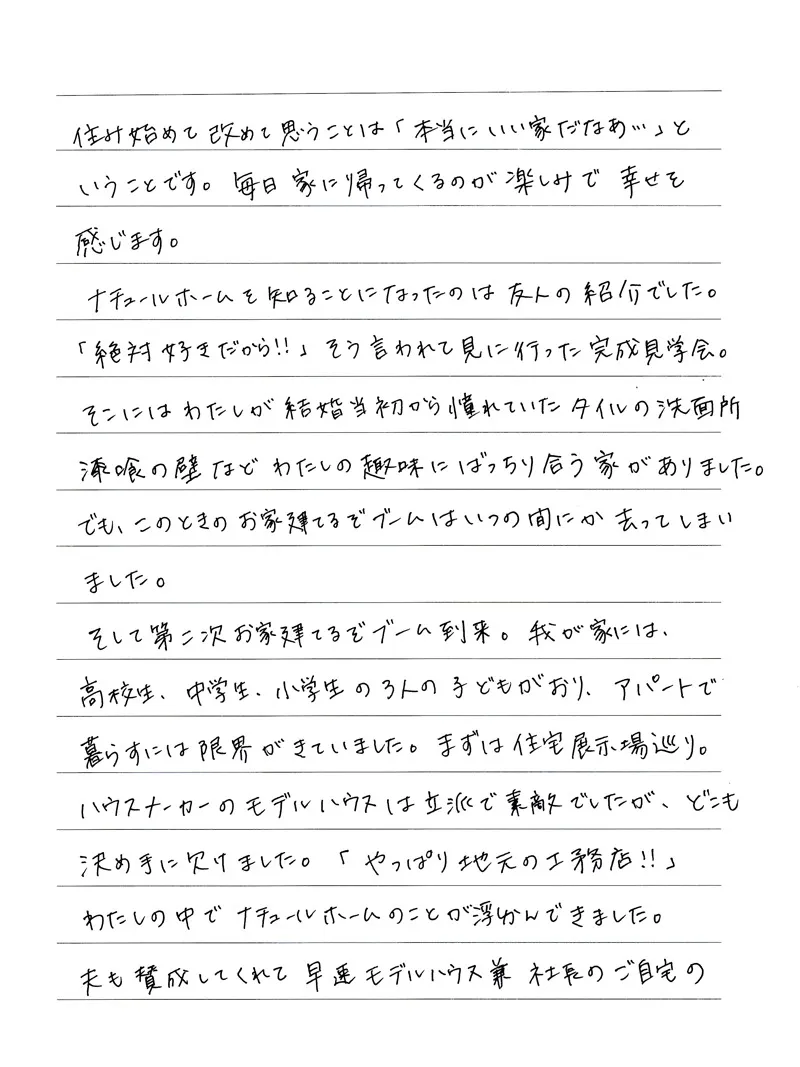 住み始めて改めて思うことは「本当にいい家だなあ…」と
いうことです。毎日家に帰ってくるのが楽しみで幸せを
感じます。
ナチュールホームを知ることになったのは友人の紹介でした。
「絶対好きだから!!」そう言われて見に行った完成見学会。
そこにはわたしが結婚当初から憧れていたタイルの洗面所
漆喰の壁などわたしの趣味にばっちり合う家がありました。
でも、このときのお家建てるぞブームはいつの間にか去ってしまい
ました。
そして第二次お家建てるぞブーム到来。我が家には、
高校生、中学生、小学生の3人の子どもがおり、アパートで
暮らすには限界がきていました。まずは住宅展示場巡り。
ハウスメーカーのモデルハウスは立派で素敵でしたが、どこも
決め手に欠けました。「やっぱり地元の工務店!!」
わたしの中でナチュールホームのことが浮かんできました。
夫も賛成してくれて早速モデルハウス兼社長のご自宅の